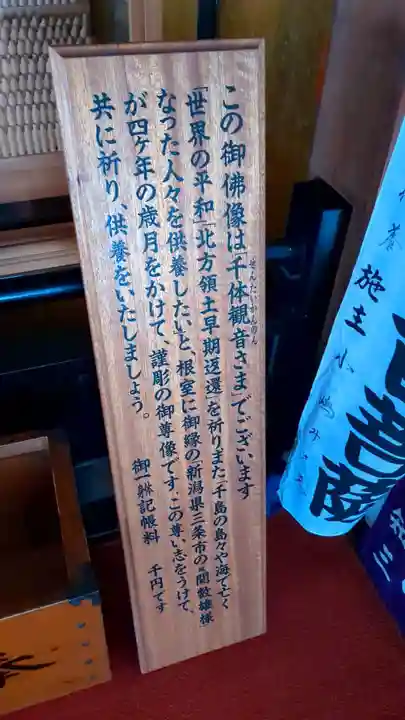 この御佛像は「千体観音さま」でございます
せんたいかんのん
「世界の平和」「北方領土早期返還」を祈りまた「千島の島々や海で亡く
なった人々を供養したいと、根室に御縁の新潟県三条市の「関敷雄様」
が四ヶ年の歳月をかけて、謹彫の御尊像です。この尊い志をうけて、
共に祈り、供養をいたしましょう。
御一躰記帳料 千円です
養
施主
菩薩
三